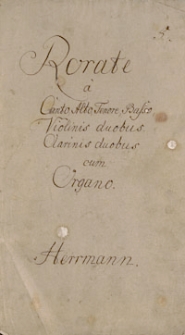 Rorate
à
Canto Alto Tenore Basso
Violinis duobus
Clarinis duobus
cum
Organo.
Herrmann.